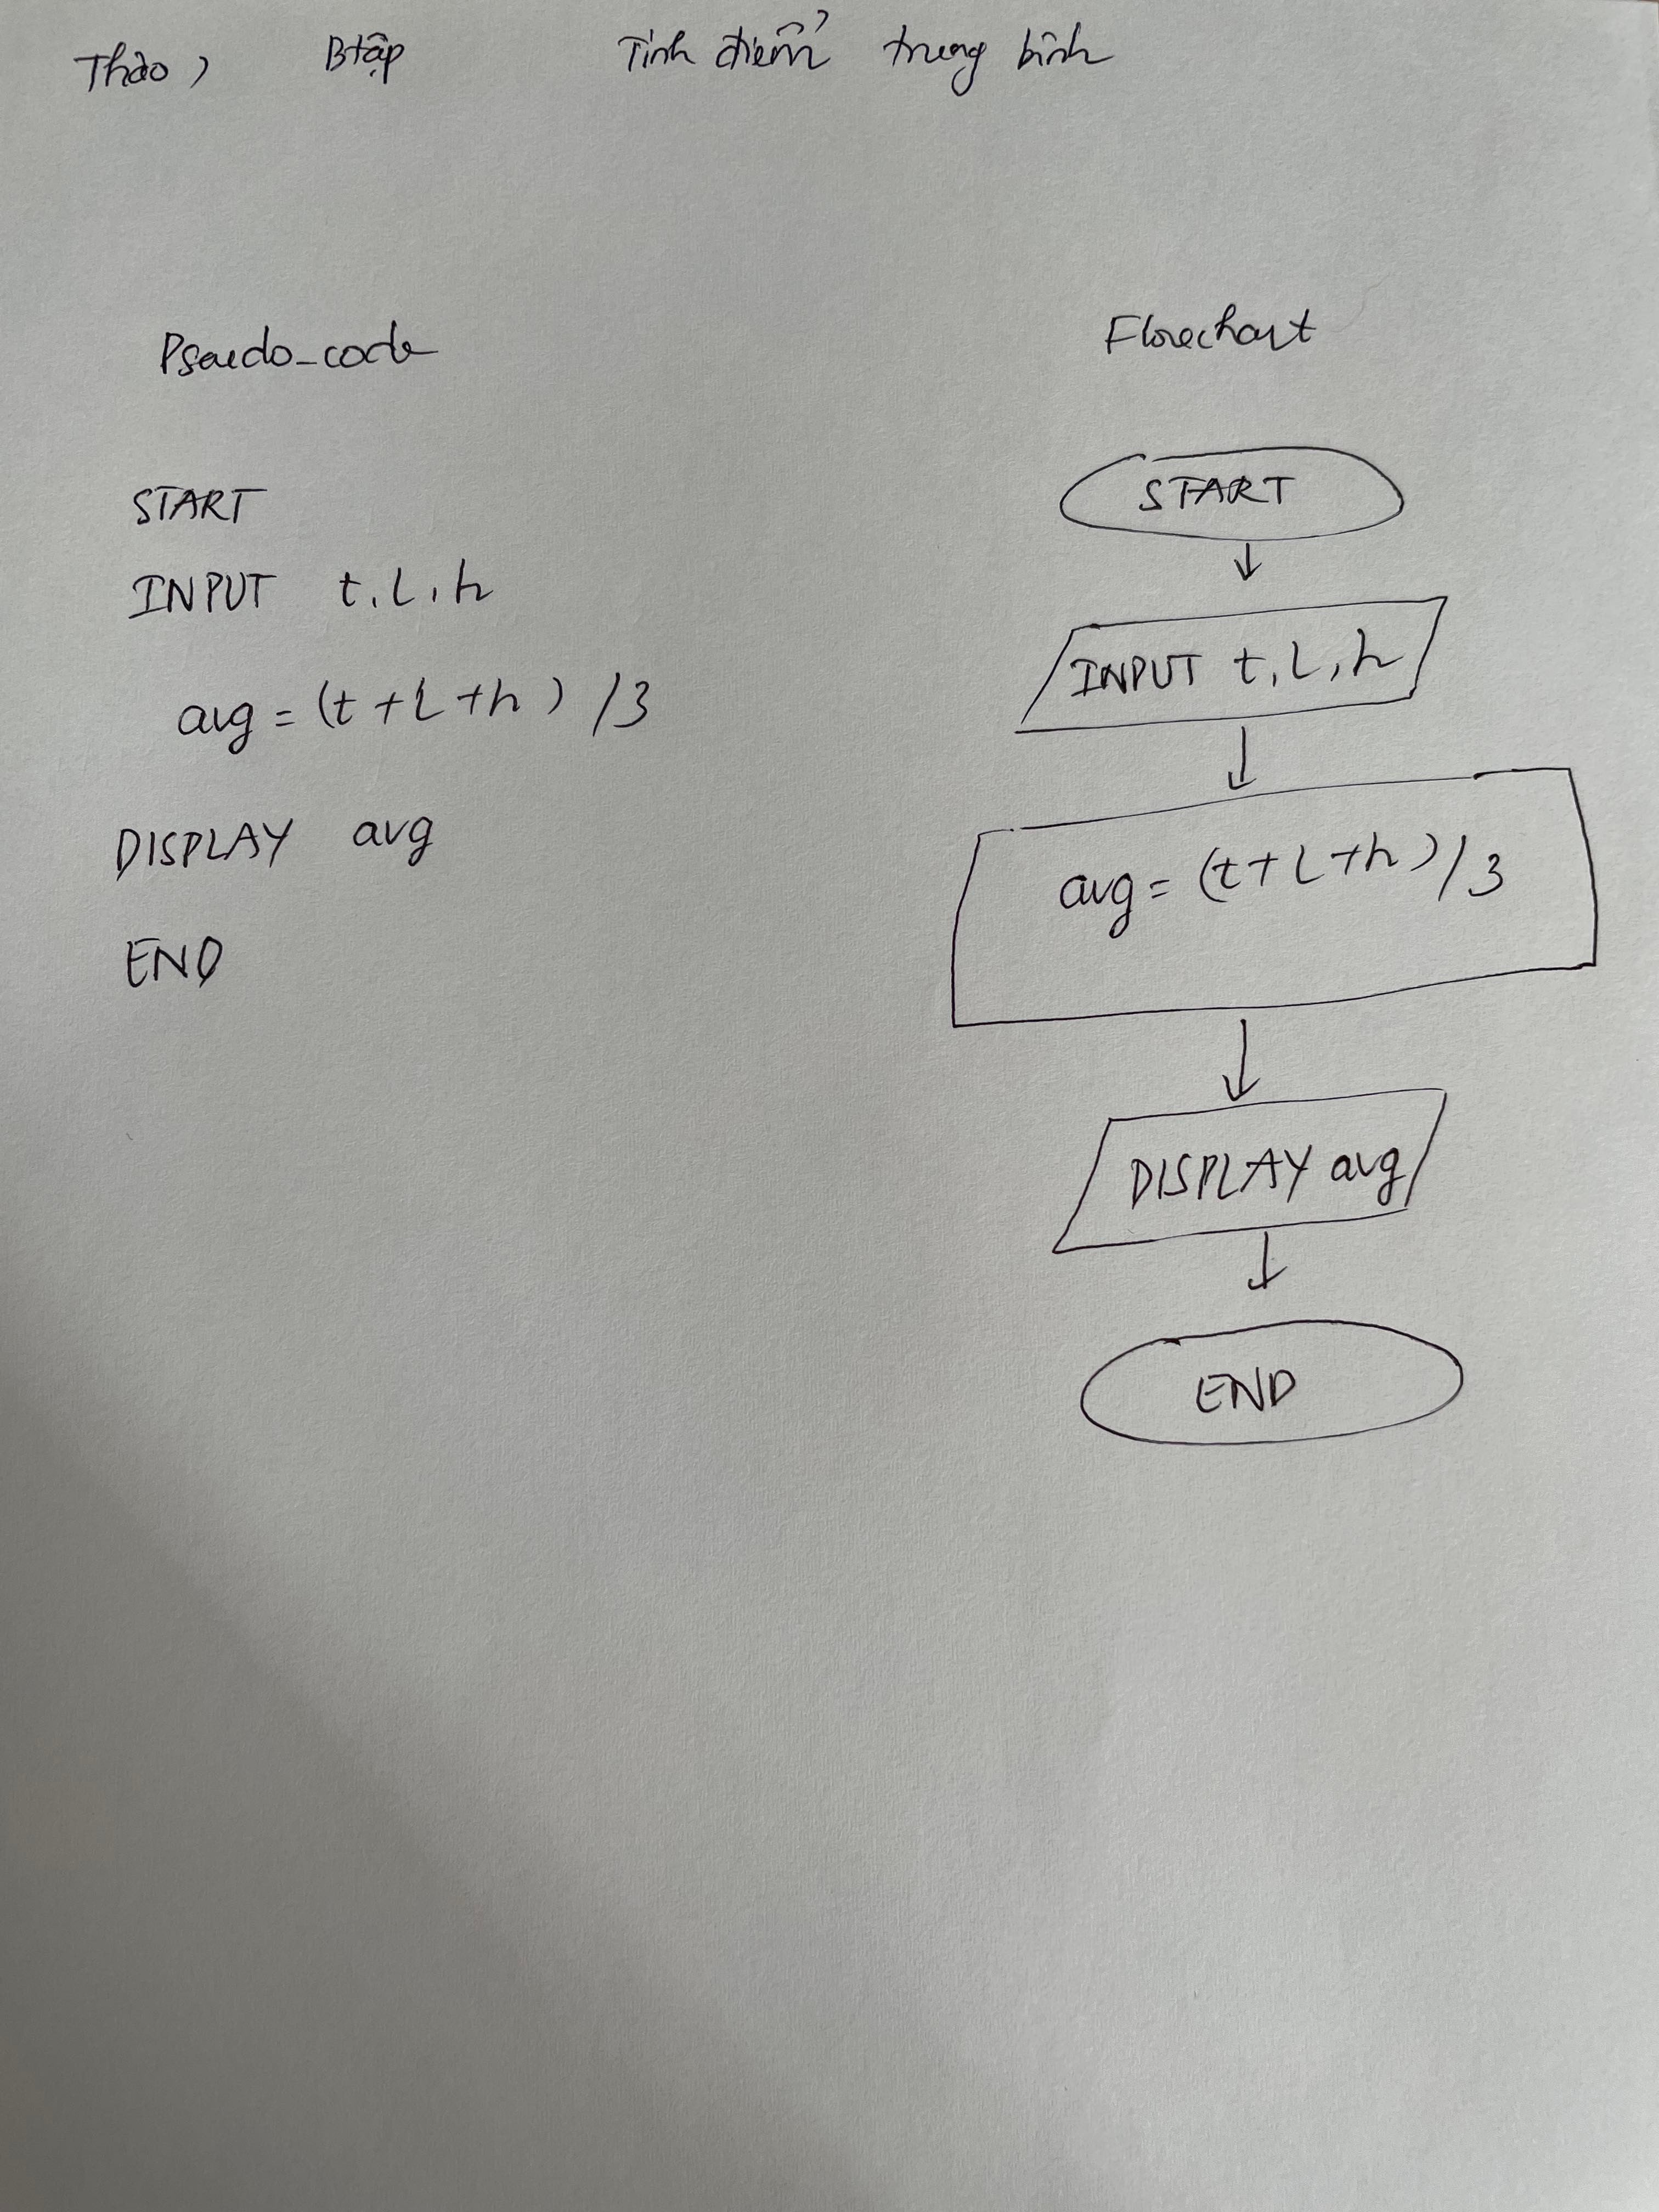 Thảo, Btập Tính điểm trung bình
Psaudo_code
START
INPUT t, L, h
avg = (t + L + h) / 3
DISPLAY avg
END
Flowchart
START
INPUT t, L, h
avg = (t + L + h) / 3
DISPLAY avg
END